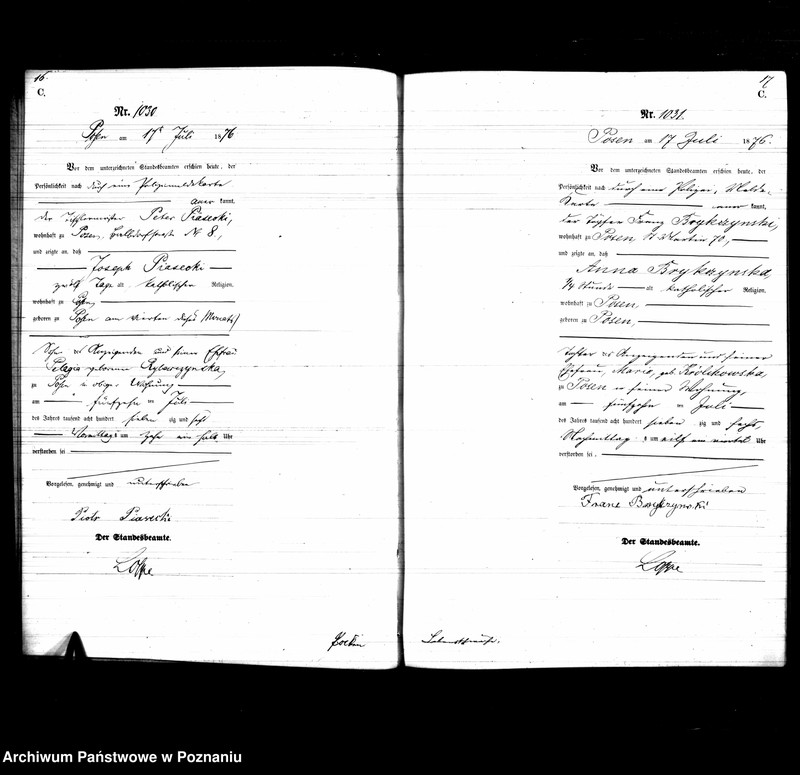 16.
C.
Nr. 1030
Posen am 17. Juli 1876
Vor dem unterzeichneten Standesbeamten erschien heute, der
Persönlichkeit nach durch eine Polizeimeldekarte
anerkannt,
der Tischlermeister Peter Piasecki,
wohnhaft zu Posen, Halbdorfstraße Nr 8,
und zeigte an, daß
Joseph Piasecki
zwölf Tage alt katholischer Religion,
wohnhaft zu Posen
geboren zu Posen am vierten dieses Monats
Sohn des Anzeigenden und seiner Ehefrau
Pelagia geborene
zu Posen in obiger Wohnung
am fünfzehn ten Juli
des Jahres tausend acht hundert sieben zig und sechs
Vormittags um zehn ein halb Uhr
verstorben sei
Vorgelesen, genehmigt und unterschrieben
Piotr Piasecki
Der Standesbeamte.
17
C.
Nr. 1031.
Posen am 17 Juli 1876.
Vor dem unterzeichneten Standesbeamten erschien heute, der
Persönlichkeit nach durch eine Polizei, Melde-
Karte anerkannt,
der Töpfer Franz Brykczynski,
wohnhaft zu Posen St Martin 70,
und zeigte an, daß
Anna Brykczynska
1/4 Stunde alt katholischer Religion,
wohnhaft zu Posen,
geboren zu Posen,
Tochter des Anzeigenten und seiner
Ehefrau, Marie, geb. Królikowska,
zu Posen in seiner Wohnung,
am fünfzehn ten Juli
des Jahres tausend acht hundert sieben zig und sechs,
Nachmittag s um elf ein viertel Uhr
verstorben sei.
Vorgelesen, genehmigt und unterschrieben
Franc Brykczynski
Der Standesbeamte.
Archiwum Państwowe w Poznaniu